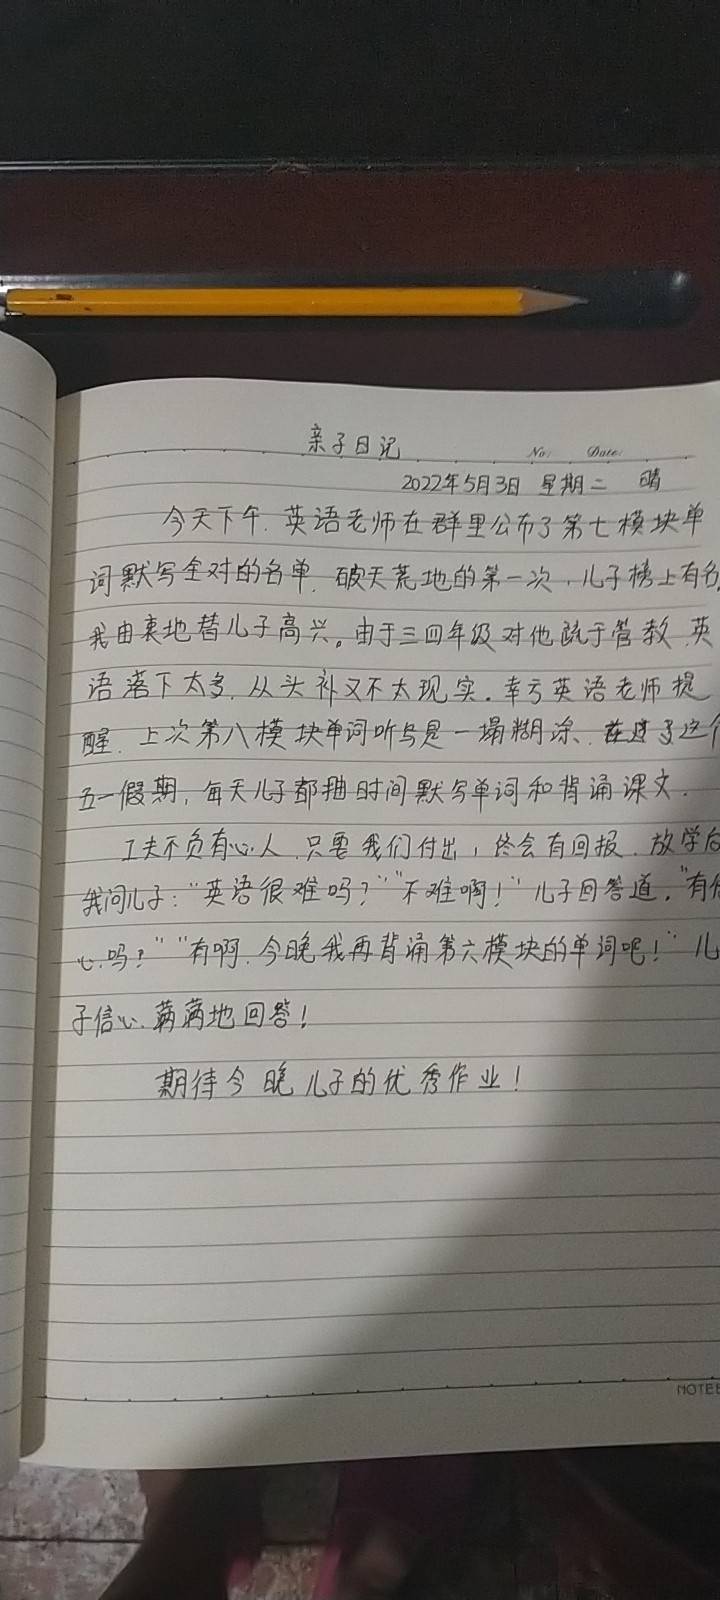 亲子日记
No: Date:
2022年5月3日 星期二 晴
今天下午,英语老师在群里公布了第七模块单
词默写全对的名单,破天荒地的第一次,儿子榜上有名,
我由衷地替儿子高兴。由于三四年级对他疏于管教,英
语落下太多,从头补又不太现实。幸亏英语老师提
醒,上次第八模块单词听写是一塌糊涂,在过了这个
五一假期,每天儿子都抽时间默写单词和背诵课文.
工夫不负有心人,只要我们付出,终会有回报.放学后
我问儿子:"英语很难吗?""不难啊!"儿子回答道,"有信
心吗?""有啊,今晚我再背诵第六模块的单词吧!"儿
子信心满满地回答!
期待今晚儿子的优秀作业!